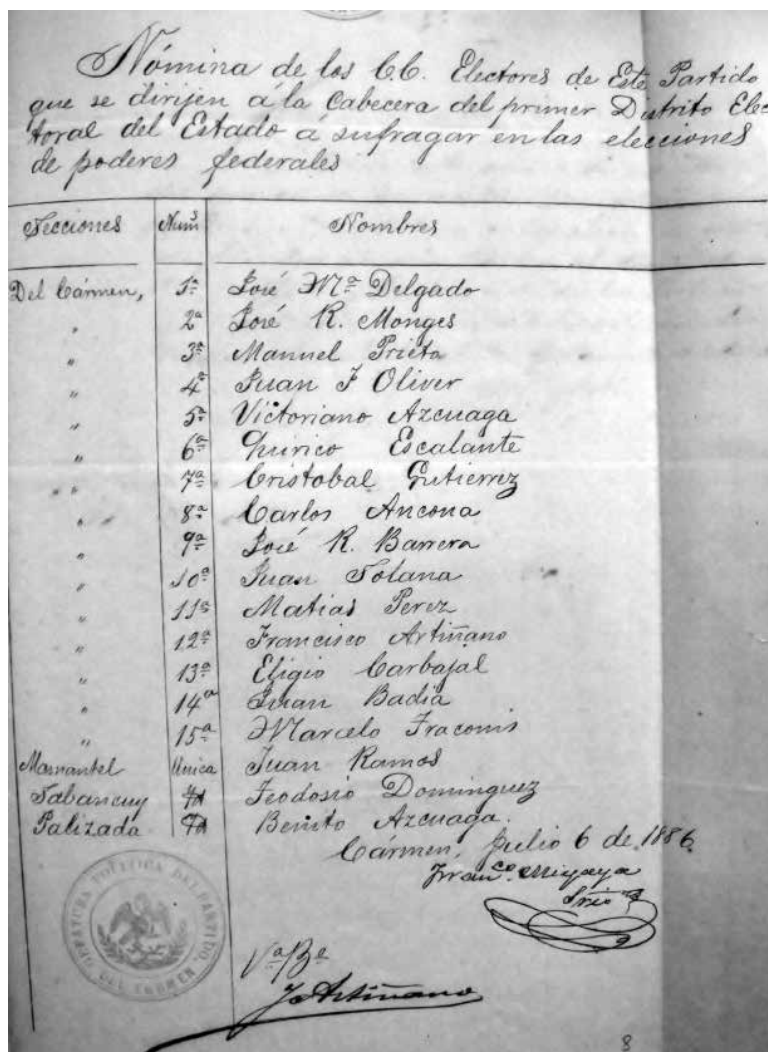 Nómina de los C.C. Electores de Este Partido
que se dirijen á la Cabecera del primer Distrito Elec
toral del Estado á sufragar en las elecciones
de poderes federales
Secciones Num.s Nombres
Del Cármen, 1ª José Mª Delgado
" 2ª José R. Monges
" 3ª Manuel Prieto
" 4ª Juan F Oliver
" 5ª Victoriano Azcuaga
" 6ª Quirico Escalante
" 7ª Cristobal Gutierrez
" 8ª Carlos Ancona
" 9ª José R. Barrera
" 10ª Juan Solana
" 11ª Matias Perez
" 12ª Francisco Artiñano
" 13ª Eligio Carbajal
" 14ª Juan Badia
" 15ª Marcelo Traconis
Mamantel Unica Juan Ramos
Sabancuy Id Teodosio Dominguez
Palizada Id Benito Azcuaga.
Carmen, Julio 6 de 1886.
Franco.
Srio
JEFATURA POLITICA DEL PARTIDO
DEL CARMEN
Vº Bº
Artiñano
8